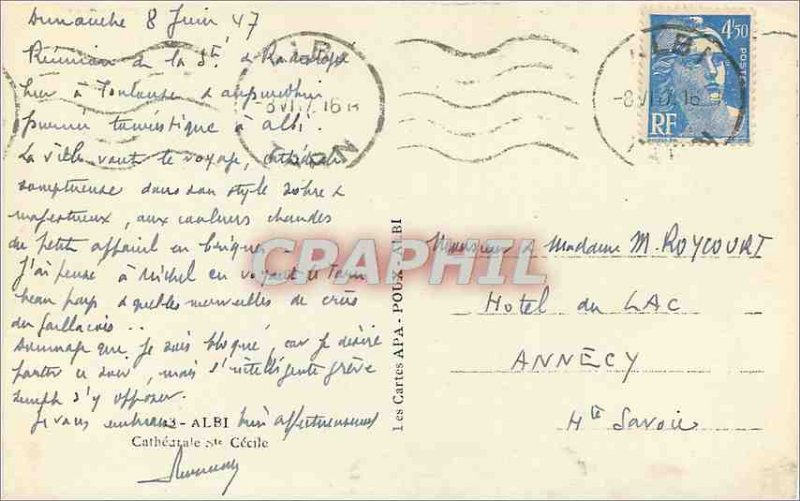 Dimanche 8 Juin 47
Réunion de la Sté de Radiologie
hier à Toulouse & aujourd'hui
journée touristique à Albi.
La ville vaut le voyage, cathédrale
somptueuse dans son style sobre &
majestueux, aux couleurs chaudes
du petit appareil en briques.
J'ai pensé à Michel en voyant ce Tarn
beau pays & quelles merveilles de crus
du Gaillacois..
Dommage que je sois bloqué, car je désire
partir ce soir, mais l'intelligente grève
semble s'y opposer.
Je vous embrasse bien affectueusement
43 - ALBI
Cathédrale Ste Cécile
Les Cartes APA-POUX - ALBI
CPAPHIL
ALBI
-8 VI 47 16 H
TARN
4f50
POSTES
RF
ALBI
TARN
Monsieur & Madame M. ROYCOURT
Hotel du LAC
ANNECY
Hte Savoie